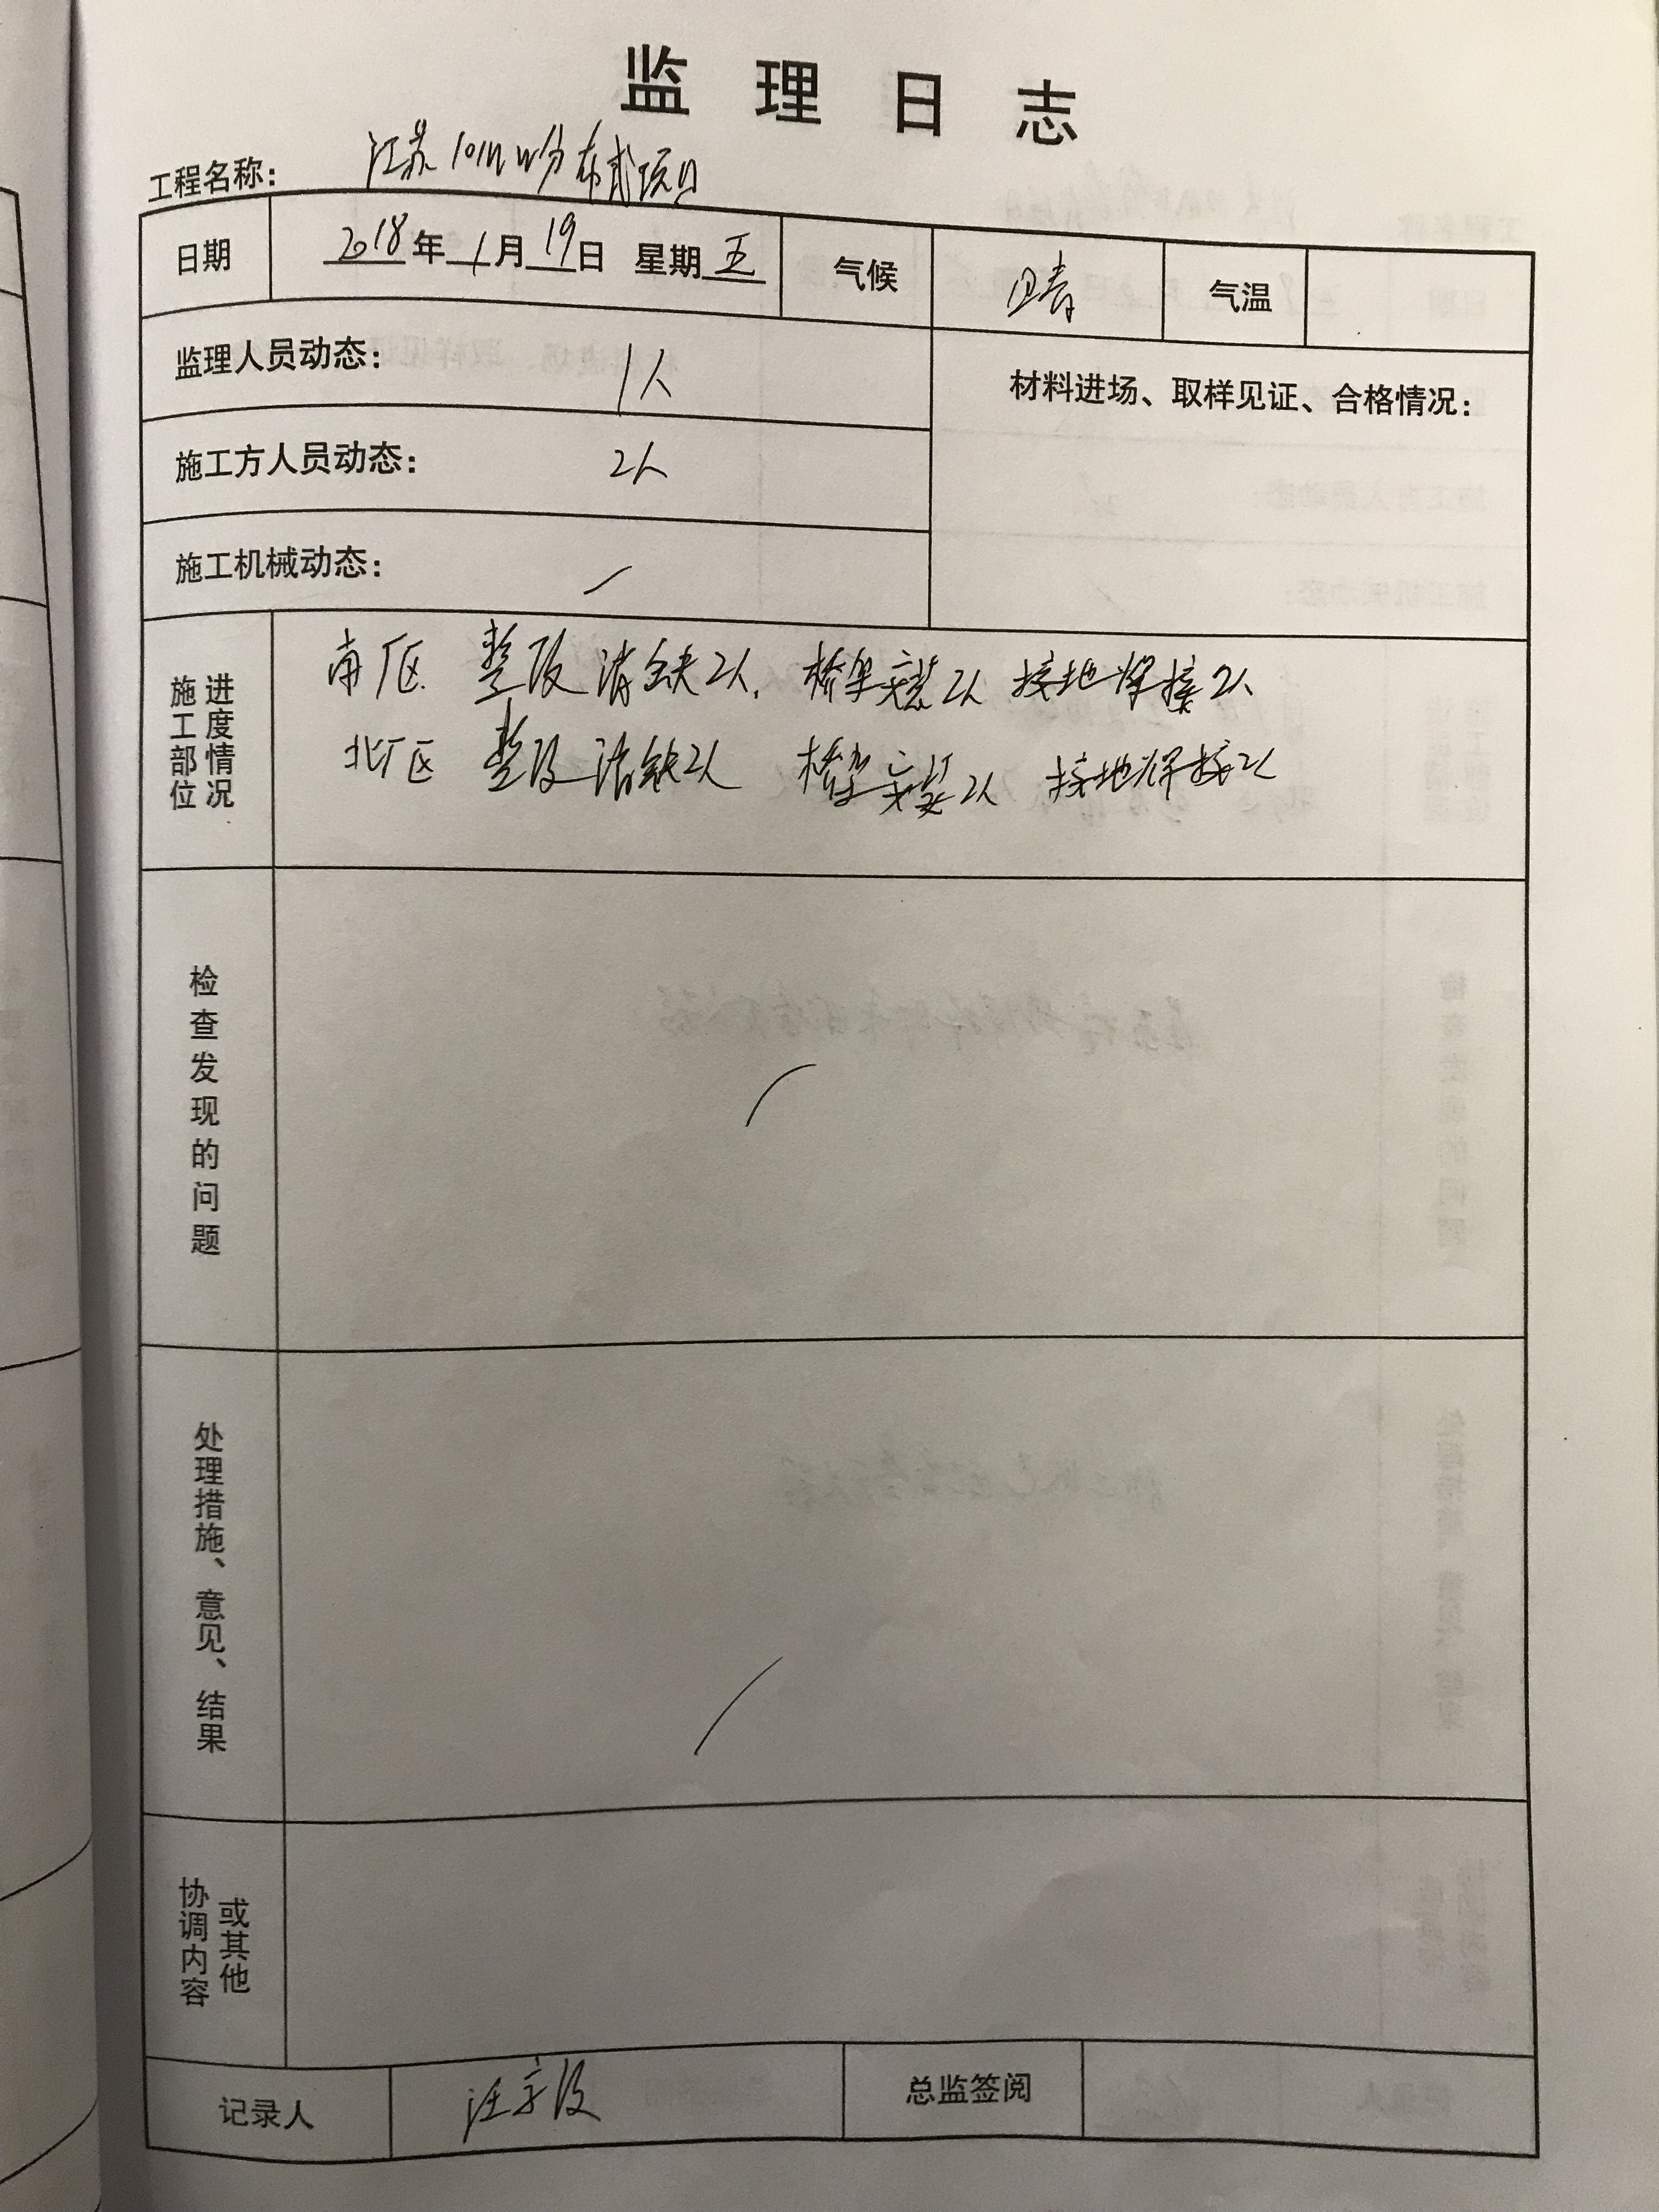 监理日志
工程名称: 江苏10MW分布式项目
日期 2018年1月19日 星期五 气候 晴 气温
监理人员动态: 1人
材料进场、取样见证、合格情况:
施工方人员动态: 2人
施工机械动态: /
施工部位进度情况
南厂区 整改消缺2人, 桥架安装2人 接地焊接2人
北厂区 整改消缺2人 桥架安装2人 接地焊接2人
检查发现的问题 /
处理措施、意见、结果 /
协调内容或其他
记录人 汪 总监签阅